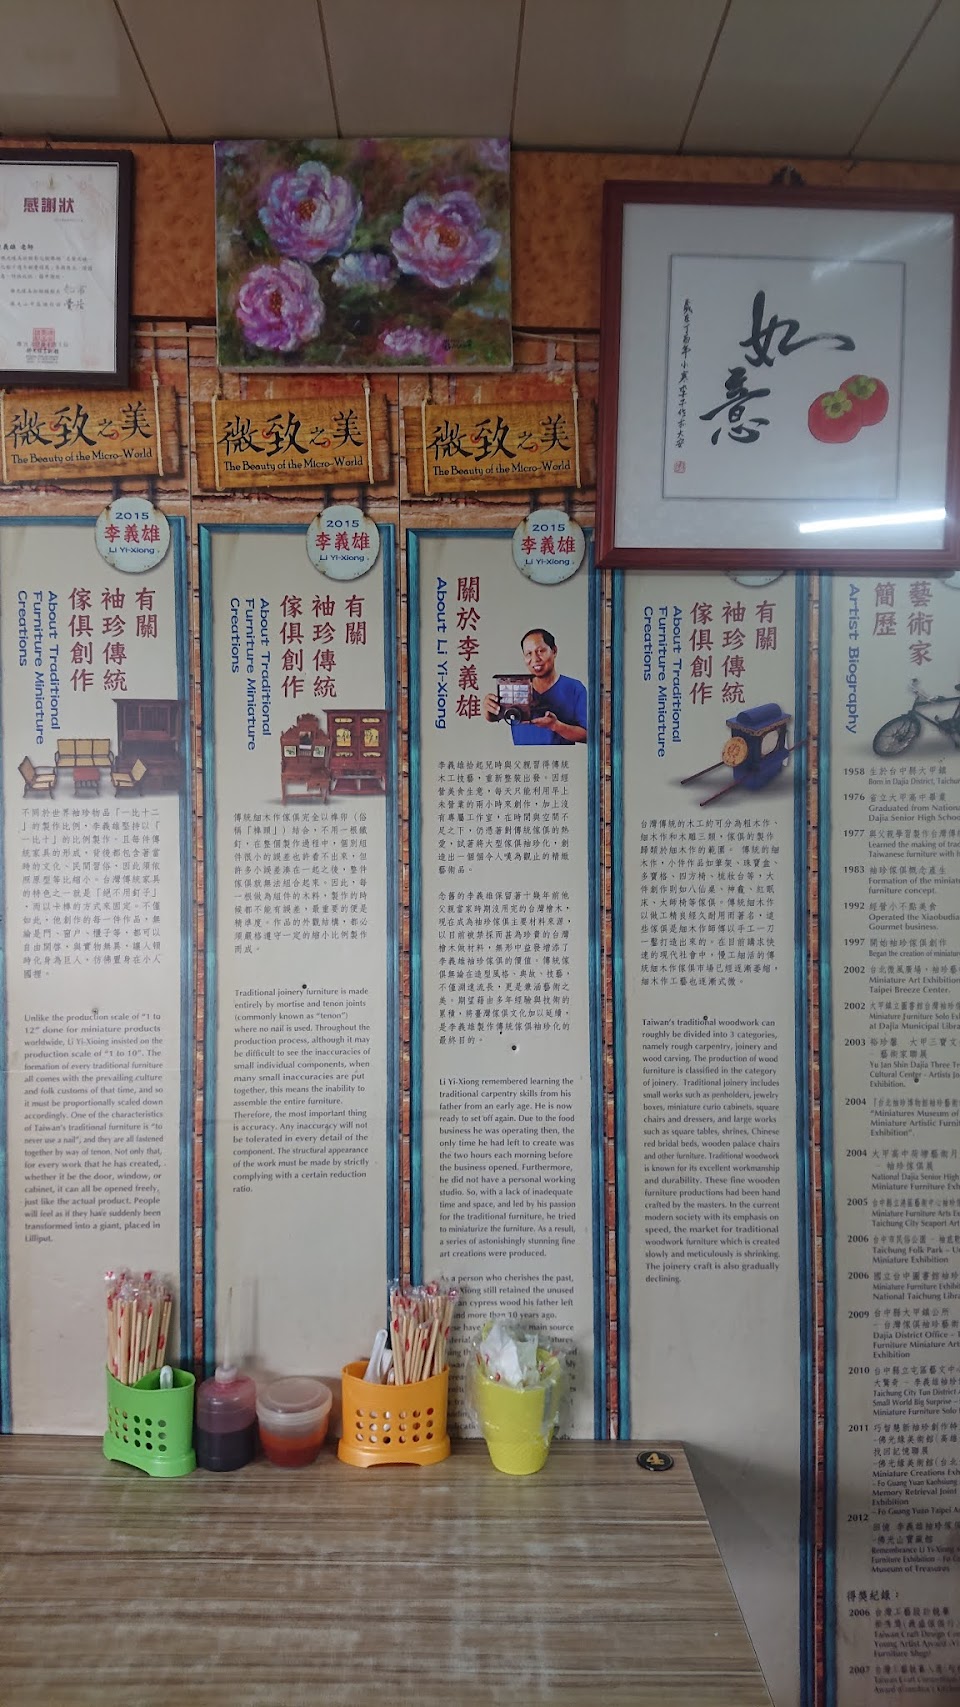 感謝狀
如意
微致之美
The Beauty of the Micro-World
2015
李義雄
Li Yi-Xiong
有關
袖珍傳統
傢俱創作
About Traditional
Furniture Miniature
Creations
不同於世界袖珍物品「一比十二
」的製作比例，李義雄堅持以「
一比十」的比例製作。且每件傳
統家具的形成，背後都包含著當
時的文化、民間習俗，因此須依
照原型等比縮小。台灣傳統家具
的特色之一就是「絕不用釘子」
，而以卡榫的方式來固定。不僅
如此，他創作的每一件作品，無
論是門、窗戶、櫃子等，都可以
自由開啓，與實物無異，讓人頓
時化身為巨人，仿佛置身在小人
國裡。
Unlike the production scale of "1 to
12" done for miniature products
worldwide, Li Yi-Xioing insisted on the
production scale of "1 to 10". The
formation of every traditional furniture
all comes with the prevailing culture
and folk customs of that time, and so
it must be proportionally scaled down
accordingly. One of the characteristics
of Taiwan's traditional furniture is "to
never use a nail", and they are all fastened
together by way of tenon. Not only that,
for every work that he has created,
whether it be the door, window, or
cabinet, it can all be opened freely,
just like the actual product. People
will feel as if they have suddenly been
transformed into a giant, placed in
Lilliput.
微致之美
The Beauty of the Micro-World
2015
李義雄
Li Yi-Xiong
有關
袖珍傳統
傢俱創作
About Traditional
Furniture Miniature
Creations
傳統細木作傢俱完全以榫卯（俗
稱「榫頭」）結合，不用一根鐵
釘，在整個製作過程中，個別組
件很小的誤差也許看不出來，但
許多小誤差湊在一起之後，整件
傢俱就無法組合起來。因此，每
一根做為組件的木料，製作的時
候都不能有誤差，最重要的便是
精準度。作品的外觀結構，都必
須嚴格遵守一定的縮小比例製作
而成。
Traditional joinery furniture is made
entirely by mortise and tenon joints
(commonly known as "tenon")
where no nail is used. Throughout the
production process, although it may
be difficult to see the inaccuracies of
small individual components, when
many small inaccuracies are put
together, this means the inability to
assemble the entire furniture.
Therefore, the most important thing
is accuracy. Any inaccuracy will not
be tolerated in every detail of the
component. The structural appearance
of the work must be made by strictly
complying with a certain reduction
ratio.
微致之美
The Beauty of the Micro-World
2015
李義雄
Li Yi-Xiong
關於李義雄
About Li Yi-Xiong
李義雄拾起兒時與父親習得傳統
木工技藝，重新整裝出發。因經
營美食生意，每天只能利用早上
未營業的兩小時來創作，加上沒
有專屬工作室，在時間與空間不
足之下，仍憑著對傳統傢俱的熱
愛，試著將大型傢俱袖珍化，創
造出一個個令人嘆為觀止的精緻
藝術品。
念舊的李義雄保留著十幾年前他
父親當家時期沒用完的台灣檜木，
現在成為袖珍傢俱主要材料來源，
以目前被禁採而甚為珍貴的台灣
檜木做材料，無形中益發增添了
李義雄袖珍傢俱的價值。傳統傢
俱無論在造型風格、典故、技藝，
不僅淵遠流長，更是兼涵藝術之
美。期望藉由多年經驗與技術的
累積，將臺灣傢俱文化加以延續，
是李義雄製作傳統傢俱袖珍化的
最終目的。
Li Yi-Xiong remembered learning the
traditional carpentry skills from his
father from an early age. He is now
ready to set off again. Due to the food
business he was operating then, the
only time he had left to create was
the two hours each morning before
the business opened. Furthermore,
he did not have a personal working
studio. So, with a lack of inadequate
time and space, and led by his passion
for the traditional furniture, he tried
to miniaturize the furniture. As a result,
a series of astonishingly stunning fine
art creations were produced.
As a person who cherishes the past,
Xiong still retained the unused
an cypress wood his father left
and more than 10 years ago.
有關
袖珍傳統
傢俱創作
About Traditional
Furniture Miniature
Creations
台灣傳統的木工約可分為粗木作、
細木作和木雕三類，傢俱的製作
歸類於細木作的範圍。 傳統的細
木作，小件作品如筆架、珠寶盒、
多寶格、四方椅、梳妝台等，大
件創作則如八仙桌、神龕、紅眠
床、大師椅等傢俱。傳統細木作
以做工精良經久耐用而著名，這
些傢俱是細木作師傅以手工一刀
一鑿打造出來的。在目前講求快
速的現代社會中，慢工細活的傳
統細木作傢俱市場已經逐漸萎縮，
細木作工藝也逐漸式微。
Taiwan's traditional woodwork can
roughly be divided into 3 categories,
namely rough carpentry, joinery and
wood carving. The production of wood
furniture is classified in the category
of joinery. Traditional joinery includes
small works such as penholders, jewelry
boxes, miniature curio cabinets, square
chairs and dressers, and large works
such as square tables, shrines, Chinese
red bridal beds, wooden palace chairs
and other furniture. Traditional woodwork
is known for its excellent workmanship
and durability. These fine wooden
furniture productions had been hand
crafted by the masters. In the current
modern society with its emphasis on
speed, the market for traditional
woodwork furniture which is created
slowly and meticulously is shrinking.
The joinery craft is also gradually
declining.
藝術家
簡歷
Artist Biography
1958 生於台中縣大甲鎮
Born in Dajia District,
1976 省立大甲高中畢業
Graduated from National
Dajia Senior High
1977
Learned the making of
Taiwanese furniture with
1983 袖珍傢俱概念產生
Formation of the
furniture concept.
1992 經營小不點美食
Operated the Xiaobudian
Gourmet business.
1997 開始袖珍傢俱創作
Began the creation of
2002 台北微風廣場
Miniature Art Exhibition
Taipei Breeze Center.
2002
at Dajia Municipal
2003
Exhibition.
2004
"Miniatures Museum of
Miniature Artistic
Exhibition".
2004
National Dajia Senior High
Miniature Furniture
2005
Miniature Furniture Arts
Taichung City Seaport
2006
Taichung Folk Park
Miniature Exhibition
2006
National Taichung
2009 台中縣大甲鎮公所
Dajia District Office
Furniture Miniature
Exhibition
2010
Small World Big Surprise
Miniature Furniture Solo
2011
Miniature Creations
Memory Retrieval Joint
Exhibition
2012
Museum of Treasures
得獎紀錄：
2006
2007
4